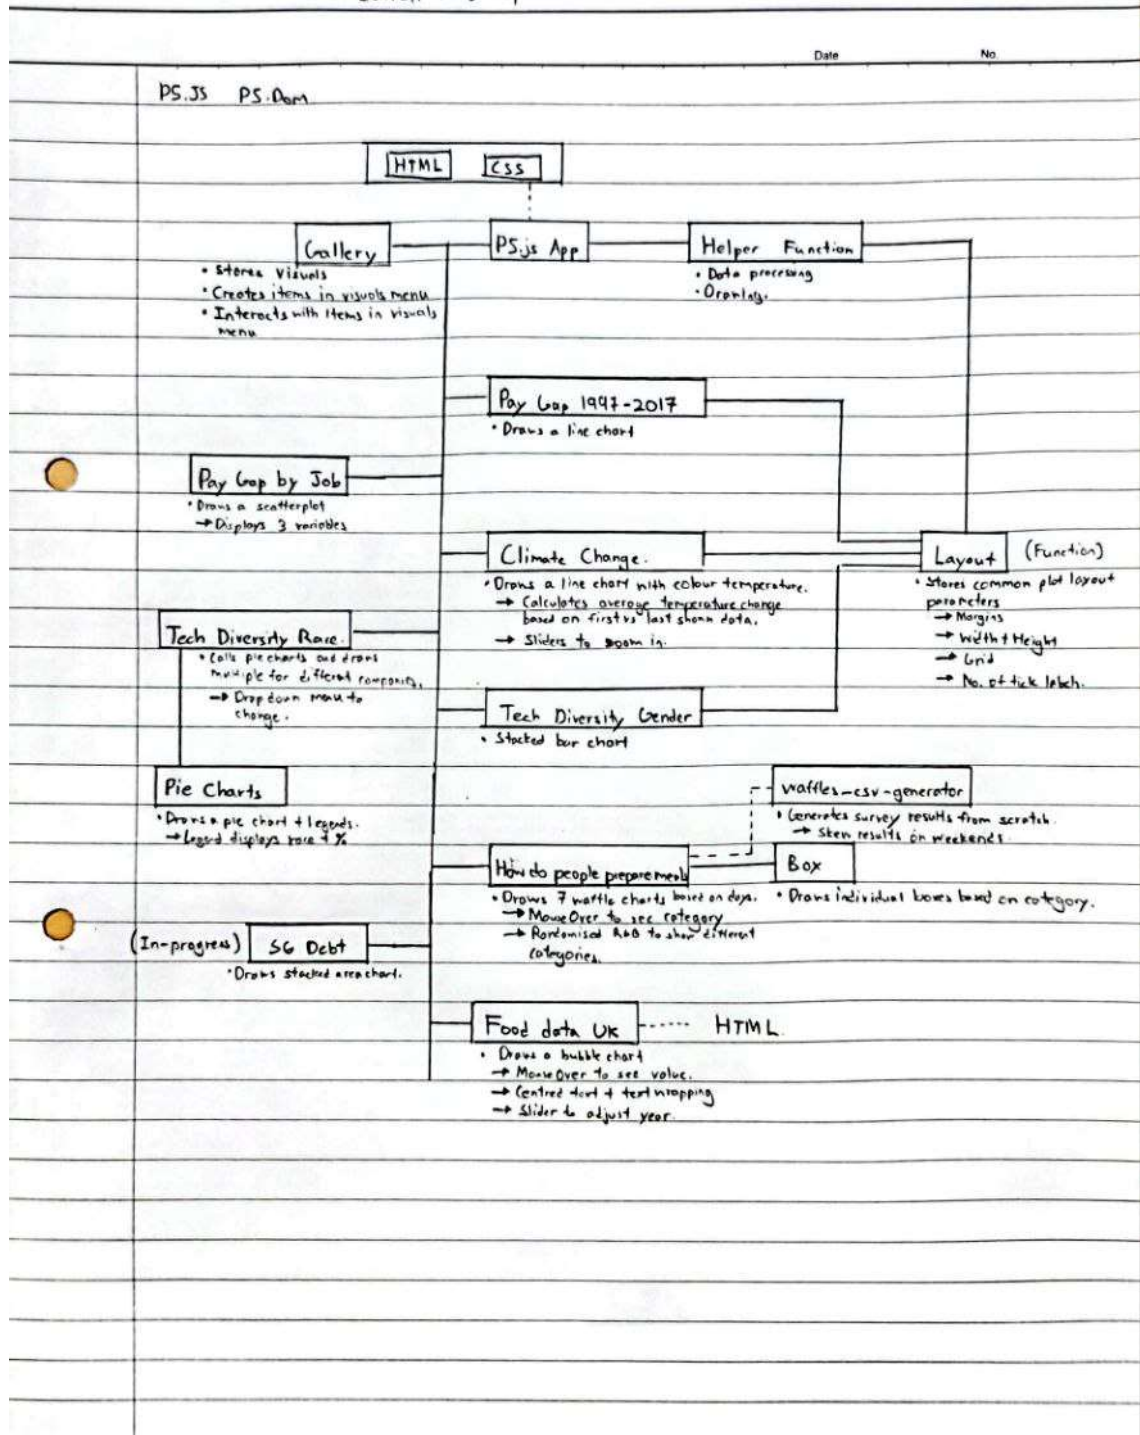 Date No.
P5.JS P5.Dom
HTML CSS
Gallery P5.js App Helper Function
• Stores Visuals
• Creates items in visuals menu
• Interacts with items in visuals
menu
• Data processing
• Drawings.
Pay Gap 1997-2017
• Draws a line chart
Pay Gap by Job
• Draws a scatterplot
→ Displays 3 variables
Climate Change.
• Draws a line chart with colour temperature.
→ Calculates average temperature change
based on first vs last shown data.
→ Sliders to zoom in.
Layout (Function)
• Stores common plot layout
parameters
→ Margins
→ Width + Height
→ Grid
→ No. of tick labels.
Tech Diversity Race.
• Calls pie charts and draws
multiple for different companies.
→ Drop down menu to
change.
Tech Diversity Gender
• Stacked bar chart
Pie Charts
• Draws a pie chart + legends.
→ Legend displays race + %
waffles-csv-generator
• Generates survey results from scratch.
→ Skew results on weekends.
How do people prepare meals
• Draws 7 waffle charts based on days.
→ MouseOver to see category
→ Randomised RGB to show different
categories.
Box
• Draws individual boxes based on category.
(In-progress) SG Debt
• Draws stacked area chart.
Food data UK HTML.
• Draws a bubble chart
→ MouseOver to see value.
→ Centred text + text wrapping
→ Slider to adjust year.